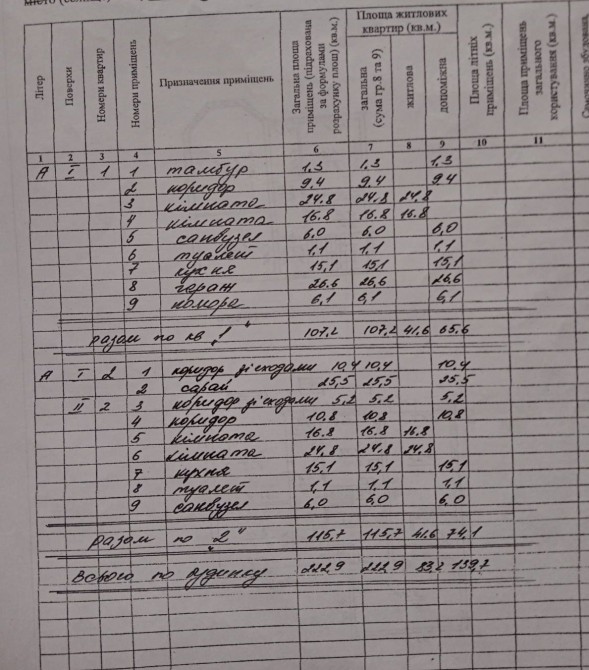 Літер | Поверхи | Номери квартир | Номери приміщень | Призначення приміщень | Загальна площа приміщень (підрахована за формулами розрахунку площ) (кв.м.) | Площа житлових квартир (кв.м.) | загальна (сума гр.8 та 9) | житлова | допоміжна | Площа літніх приміщень (кв.м.) | Площа приміщень загального користування (кв.м.)
1 2 3 4 5 6 7 8 9 10 11
А I 1 1 тамбур 1,3 1,3 1,3
2 коридор 9.4 9.4 9.4
3 кімната 24.8 24.8 24.8
4 кімната 16.8 16.8 16.8
5 санвузел 6,0 6,0 6,0
6 туалет 1,1 1,1 1,1
7 кухня 15,1 15,1 15,1
8 гараж 26.6 26,6 26,6
9 комора 6,1 6,1 6,1
разом по кв „1" 107,2 107,2 41,6 65,6
А I 2 1 коридор зі сходами 10,4 10,4 10.4
2 сарай 25,5 25,5 25.5
II 2 3 коридор зі сходами 5,2 5,2 5,2
4 коридор 10,8 10,8 10,8
5 кімната 16.8 16.8 16.8
6 кімната 24,8 24.8 24,8
7 кухня 15,1 15,1 15,1
8 туалет 1,1 1,1 1,1
9 санвузел 6,0 6,0 6,0
разом по „2" 115,7 115,7 41,6 74,1
Всього по будинку 222,9 222,9 83,2 139,7